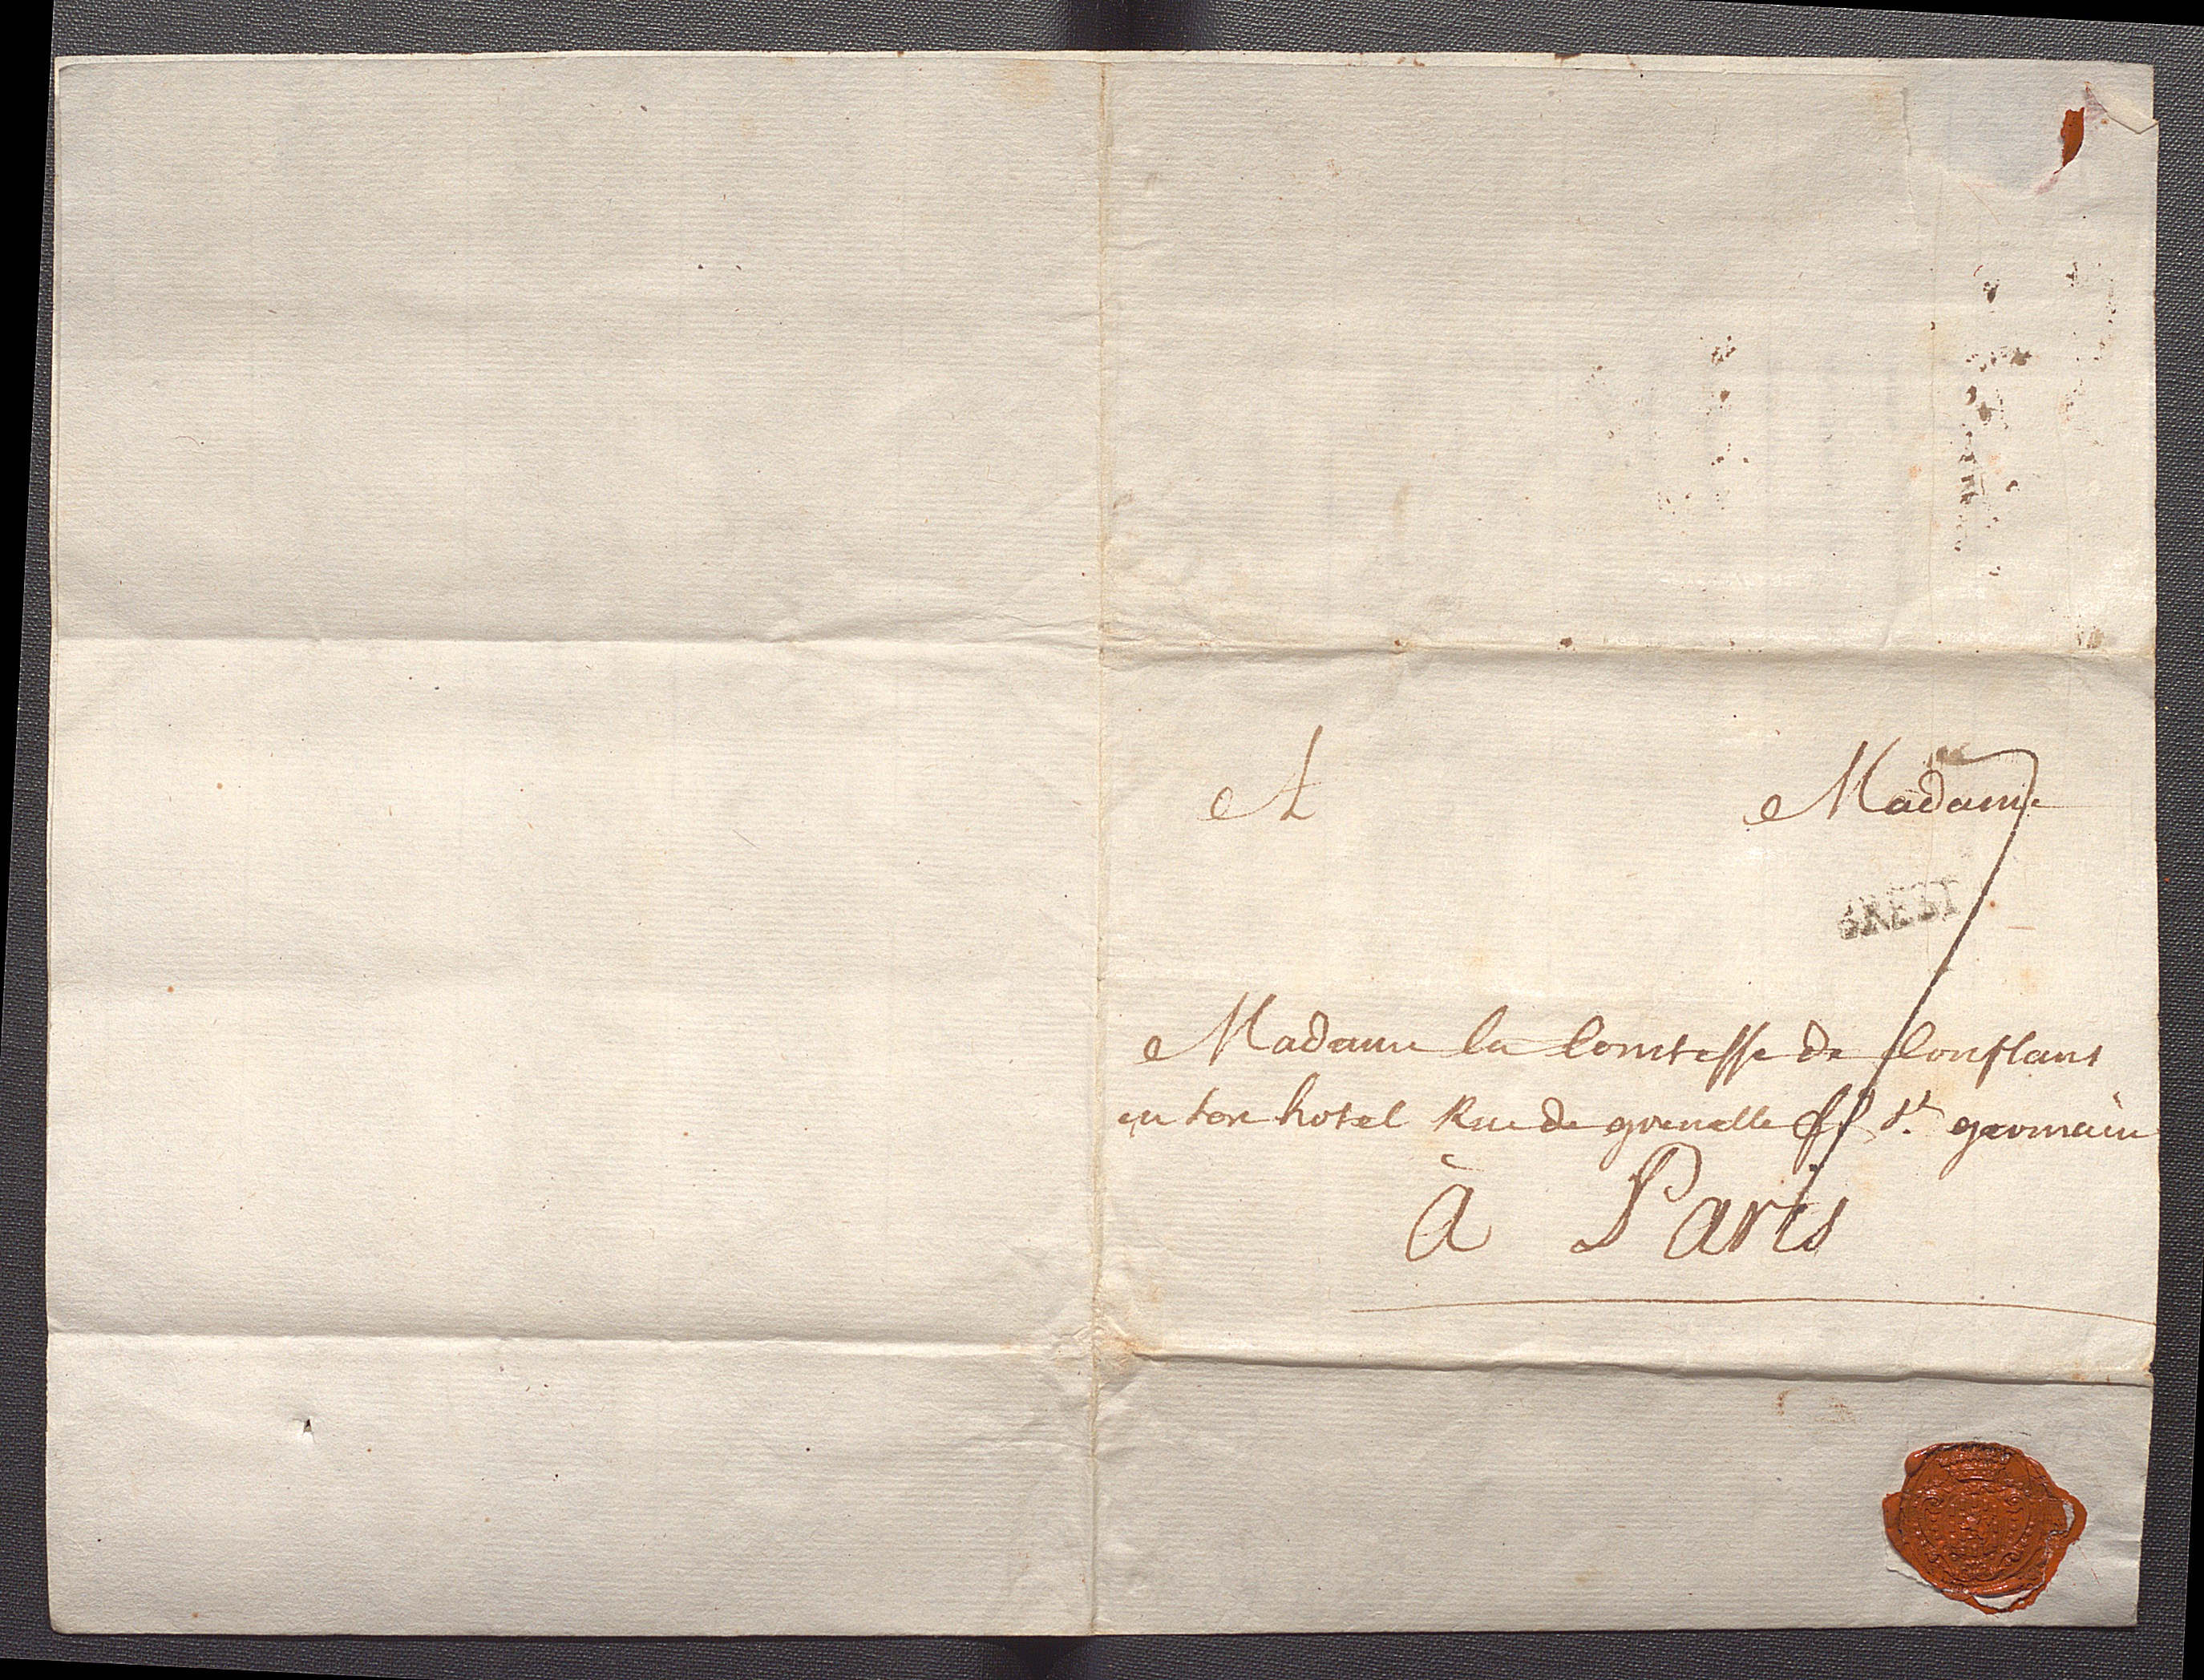 A Madame
BREST
Madame la Comtesse de Conflans
en son hotel Rue de grenelle ff St. germain
à Paris